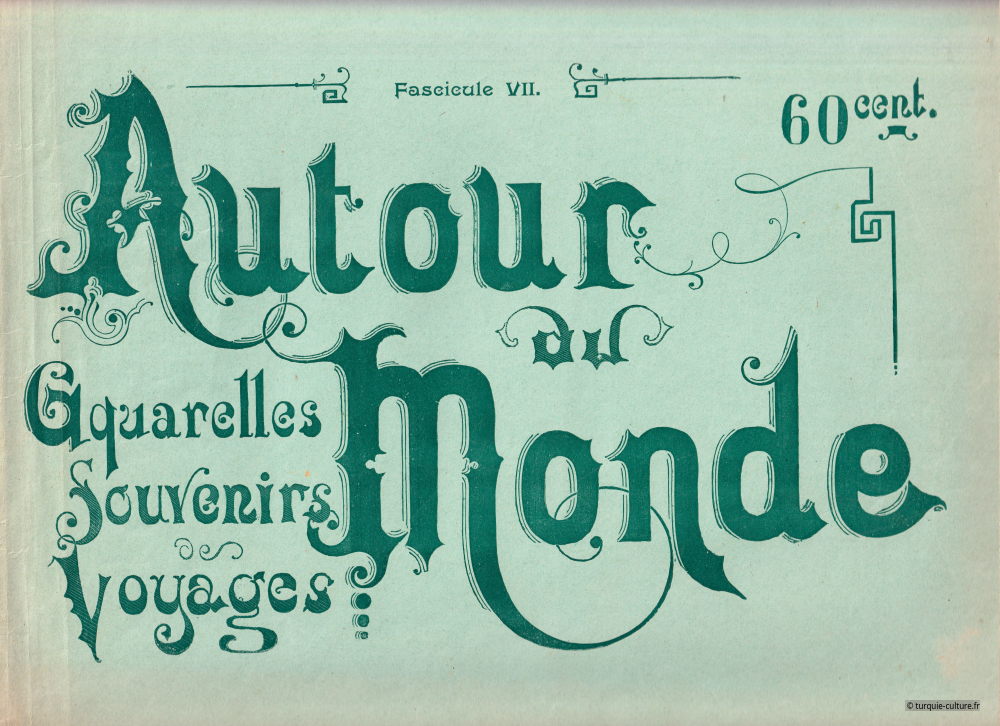 Fascicule VII.
60 cent.
Autour
du
Monde
Aquarelles
Souvenirs
Voyages
© turquie-culture.fr